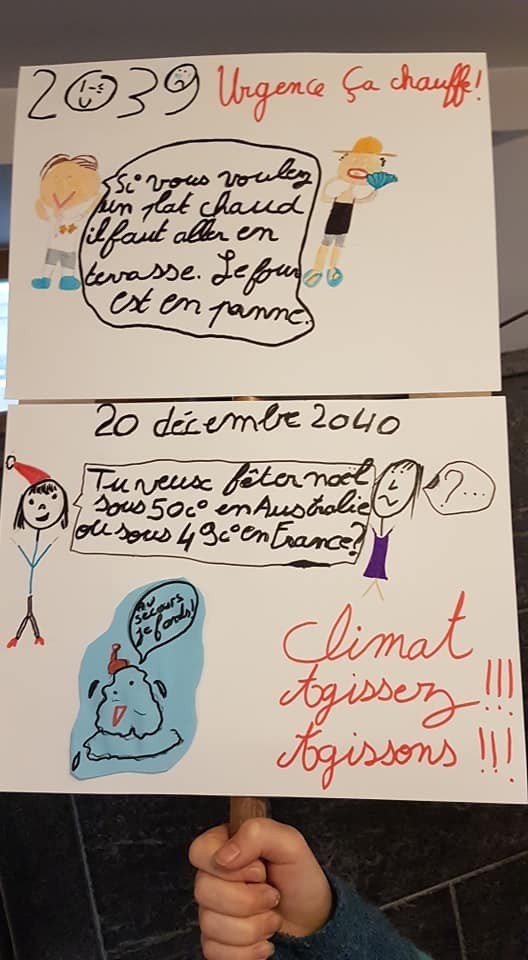 2039 Urgence ça chauffe!
Si vous voulez
un plat chaud
il faut aller en
terrasse. Le four
est en panne.
20 décembre 2040
Tu veux fêter noël
sous 50c° en Australie
ou sous 49c° en France?
?...
Au
secours
je fonds!
Climat
Agissez !!!
Agissons !!!